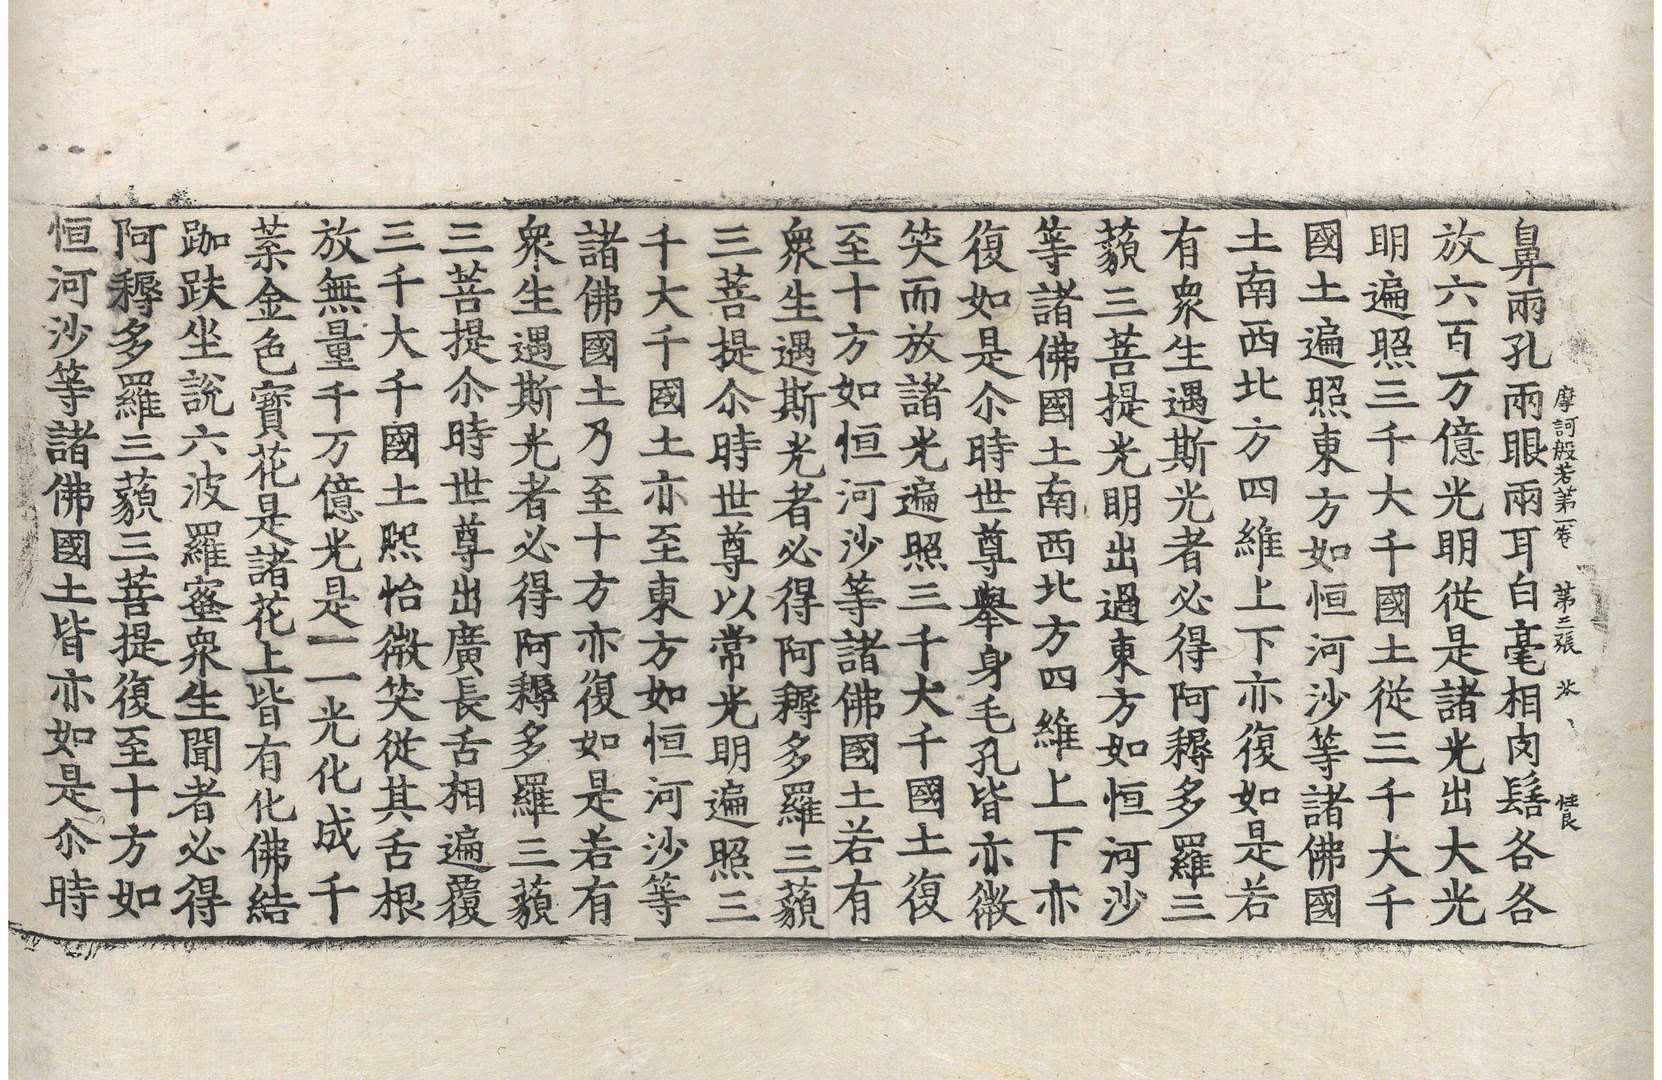 摩訶般若第一卷 第三張
鼻兩孔兩眼兩耳白毫相肉髻各各
放六百万億光明從是諸光出大光
明遍照三千大千國土從三千大千
國土遍照東方如恒河沙等諸佛國
土南西北方四維上下亦復如是若
有衆生遇斯光者必得阿耨多羅三
藐三菩提光明出過東方如恒河沙
等諸佛國土南西北方四維上下亦
復如是尒時世尊舉身毛孔皆亦微
笑而放諸光遍照三千大千國土復
至十方如恒河沙等諸佛國土若有
衆生遇斯光者必得阿耨多羅三藐
三菩提尒時世尊以常光明遍照三
千大千國土亦至東方如恒河沙等
諸佛國土乃至十方亦復如是若有
衆生遇斯光者必得阿耨多羅三藐
三菩提尒時世尊出廣長舌相遍覆
三千大千國土熈怡微笑從其舌根
放無量千万億光是一一光化成千
葉金色寶花是諸花上皆有化佛結
跏趺坐說六波羅蜜衆生聞者必得
阿耨多羅三藐三菩提復至十方如
恒河沙等諸佛國土皆亦如是尒時